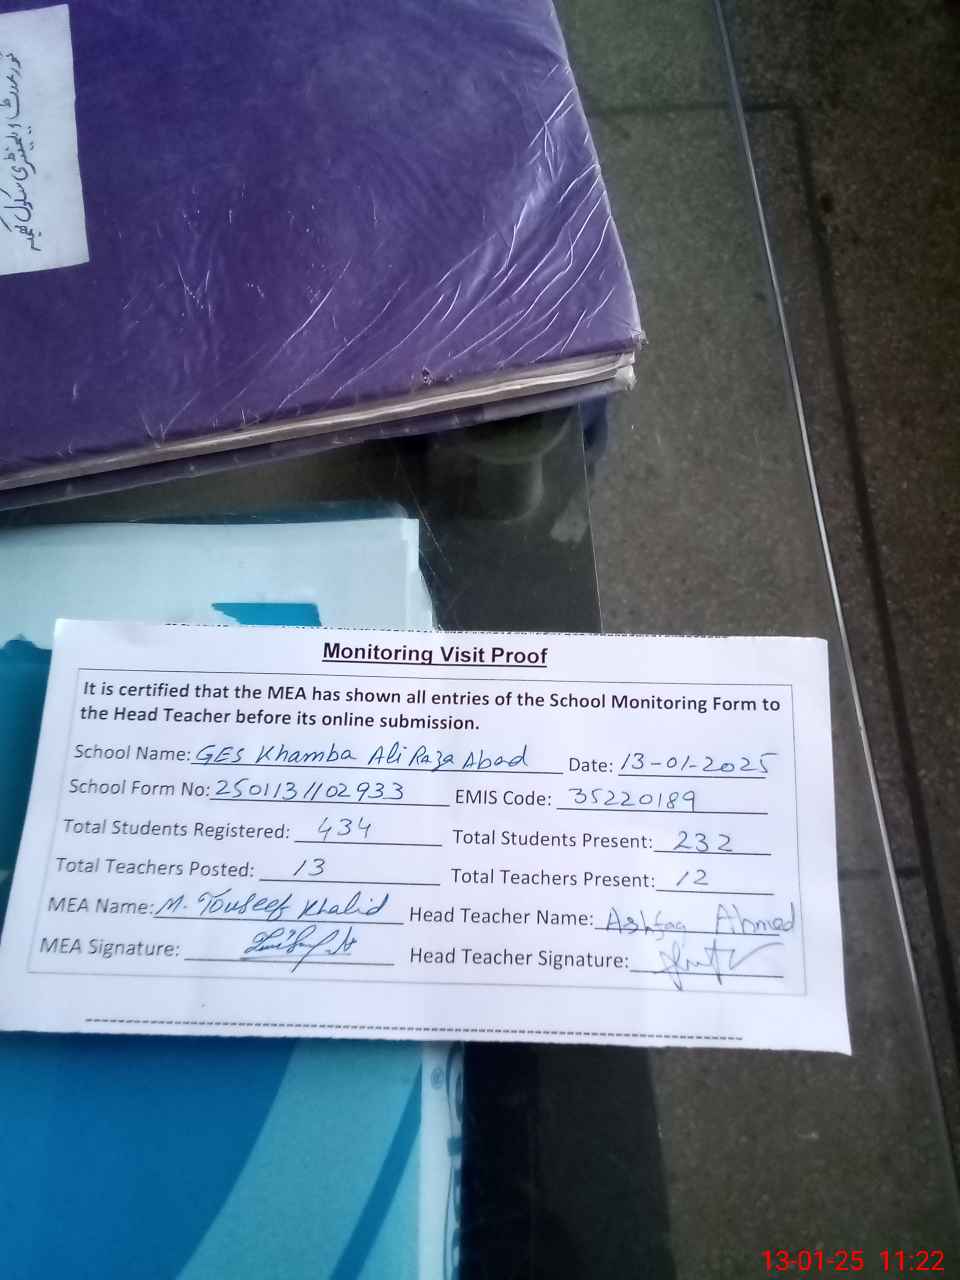 Monitoring Visit Proof
It is certified that the MEA has shown all entries of the School Monitoring Form to
the Head Teacher before its online submission.
School Name: GES Khamba Ali Raza Abad Date: 13-01-2025
School Form No: 2501131102933 EMIS Code: 35220189
Total Students Registered: 434 Total Students Present: 232
Total Teachers Posted: 13 Total Teachers Present: 12
MEA Name: M. Touseef Khalid Head Teacher Name: Ashfaq Ahmed
MEA Signature: Head Teacher Signature:
13-01-25 11:22